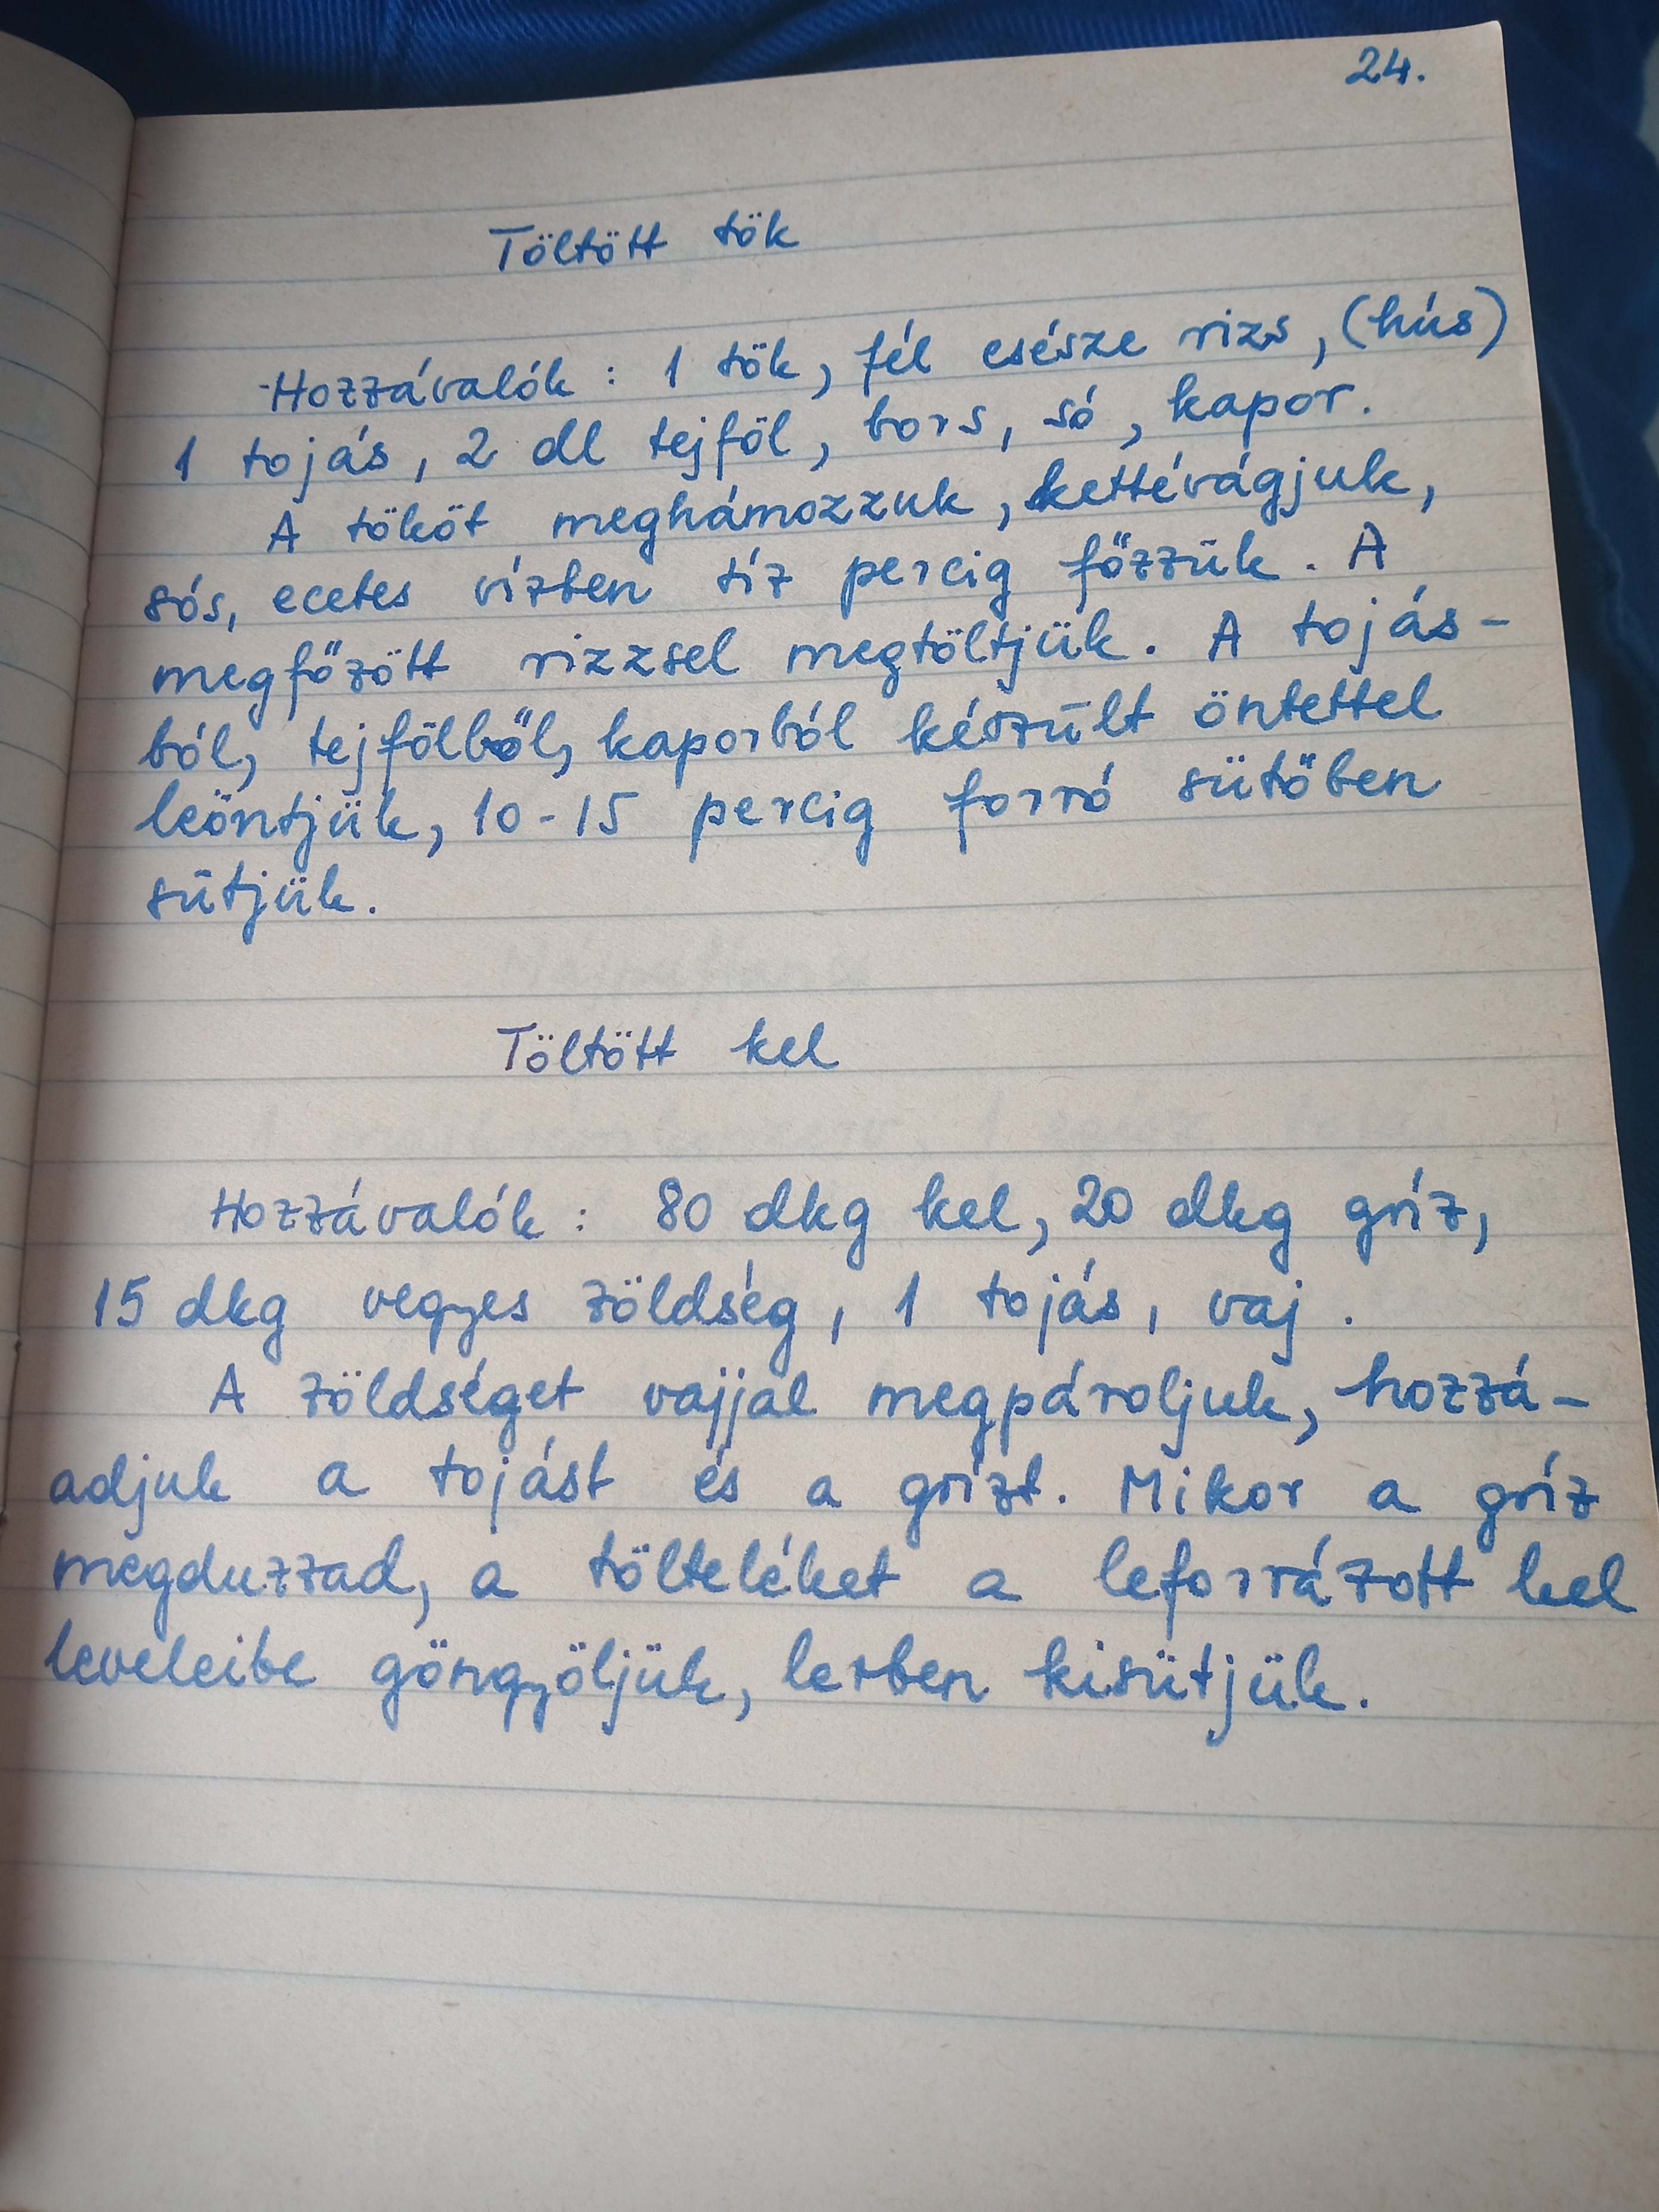 24.
Töltött tök
Hozzávalók : 1 tök, fél csésze rizs, (hús)
1 tojás, 2 dl tejföl, bors, só, kapor.
A tököt meghámozzuk, kettévágjuk,
sós, ecetes vízben tíz percig főzzük. A
megfőzött rizzsel megtöltjük. A tojás-
ból, tejfölből, kaporból készült öntettel
leöntjük, 10-15 percig forró sütőben
sütjük.
Töltött kel
Hozzávalók : 80 dkg kel, 20 dkg gríz,
15 dkg vegyes zöldség, 1 tojás, vaj.
A zöldséget vajjal megpároljuk, hozzá-
adjuk a tojást és a grízt. Mikor a gríz
megduzzad, a tölteléket a leforrázott kel
leveleibe göngyöljük, lerben kisütjük.